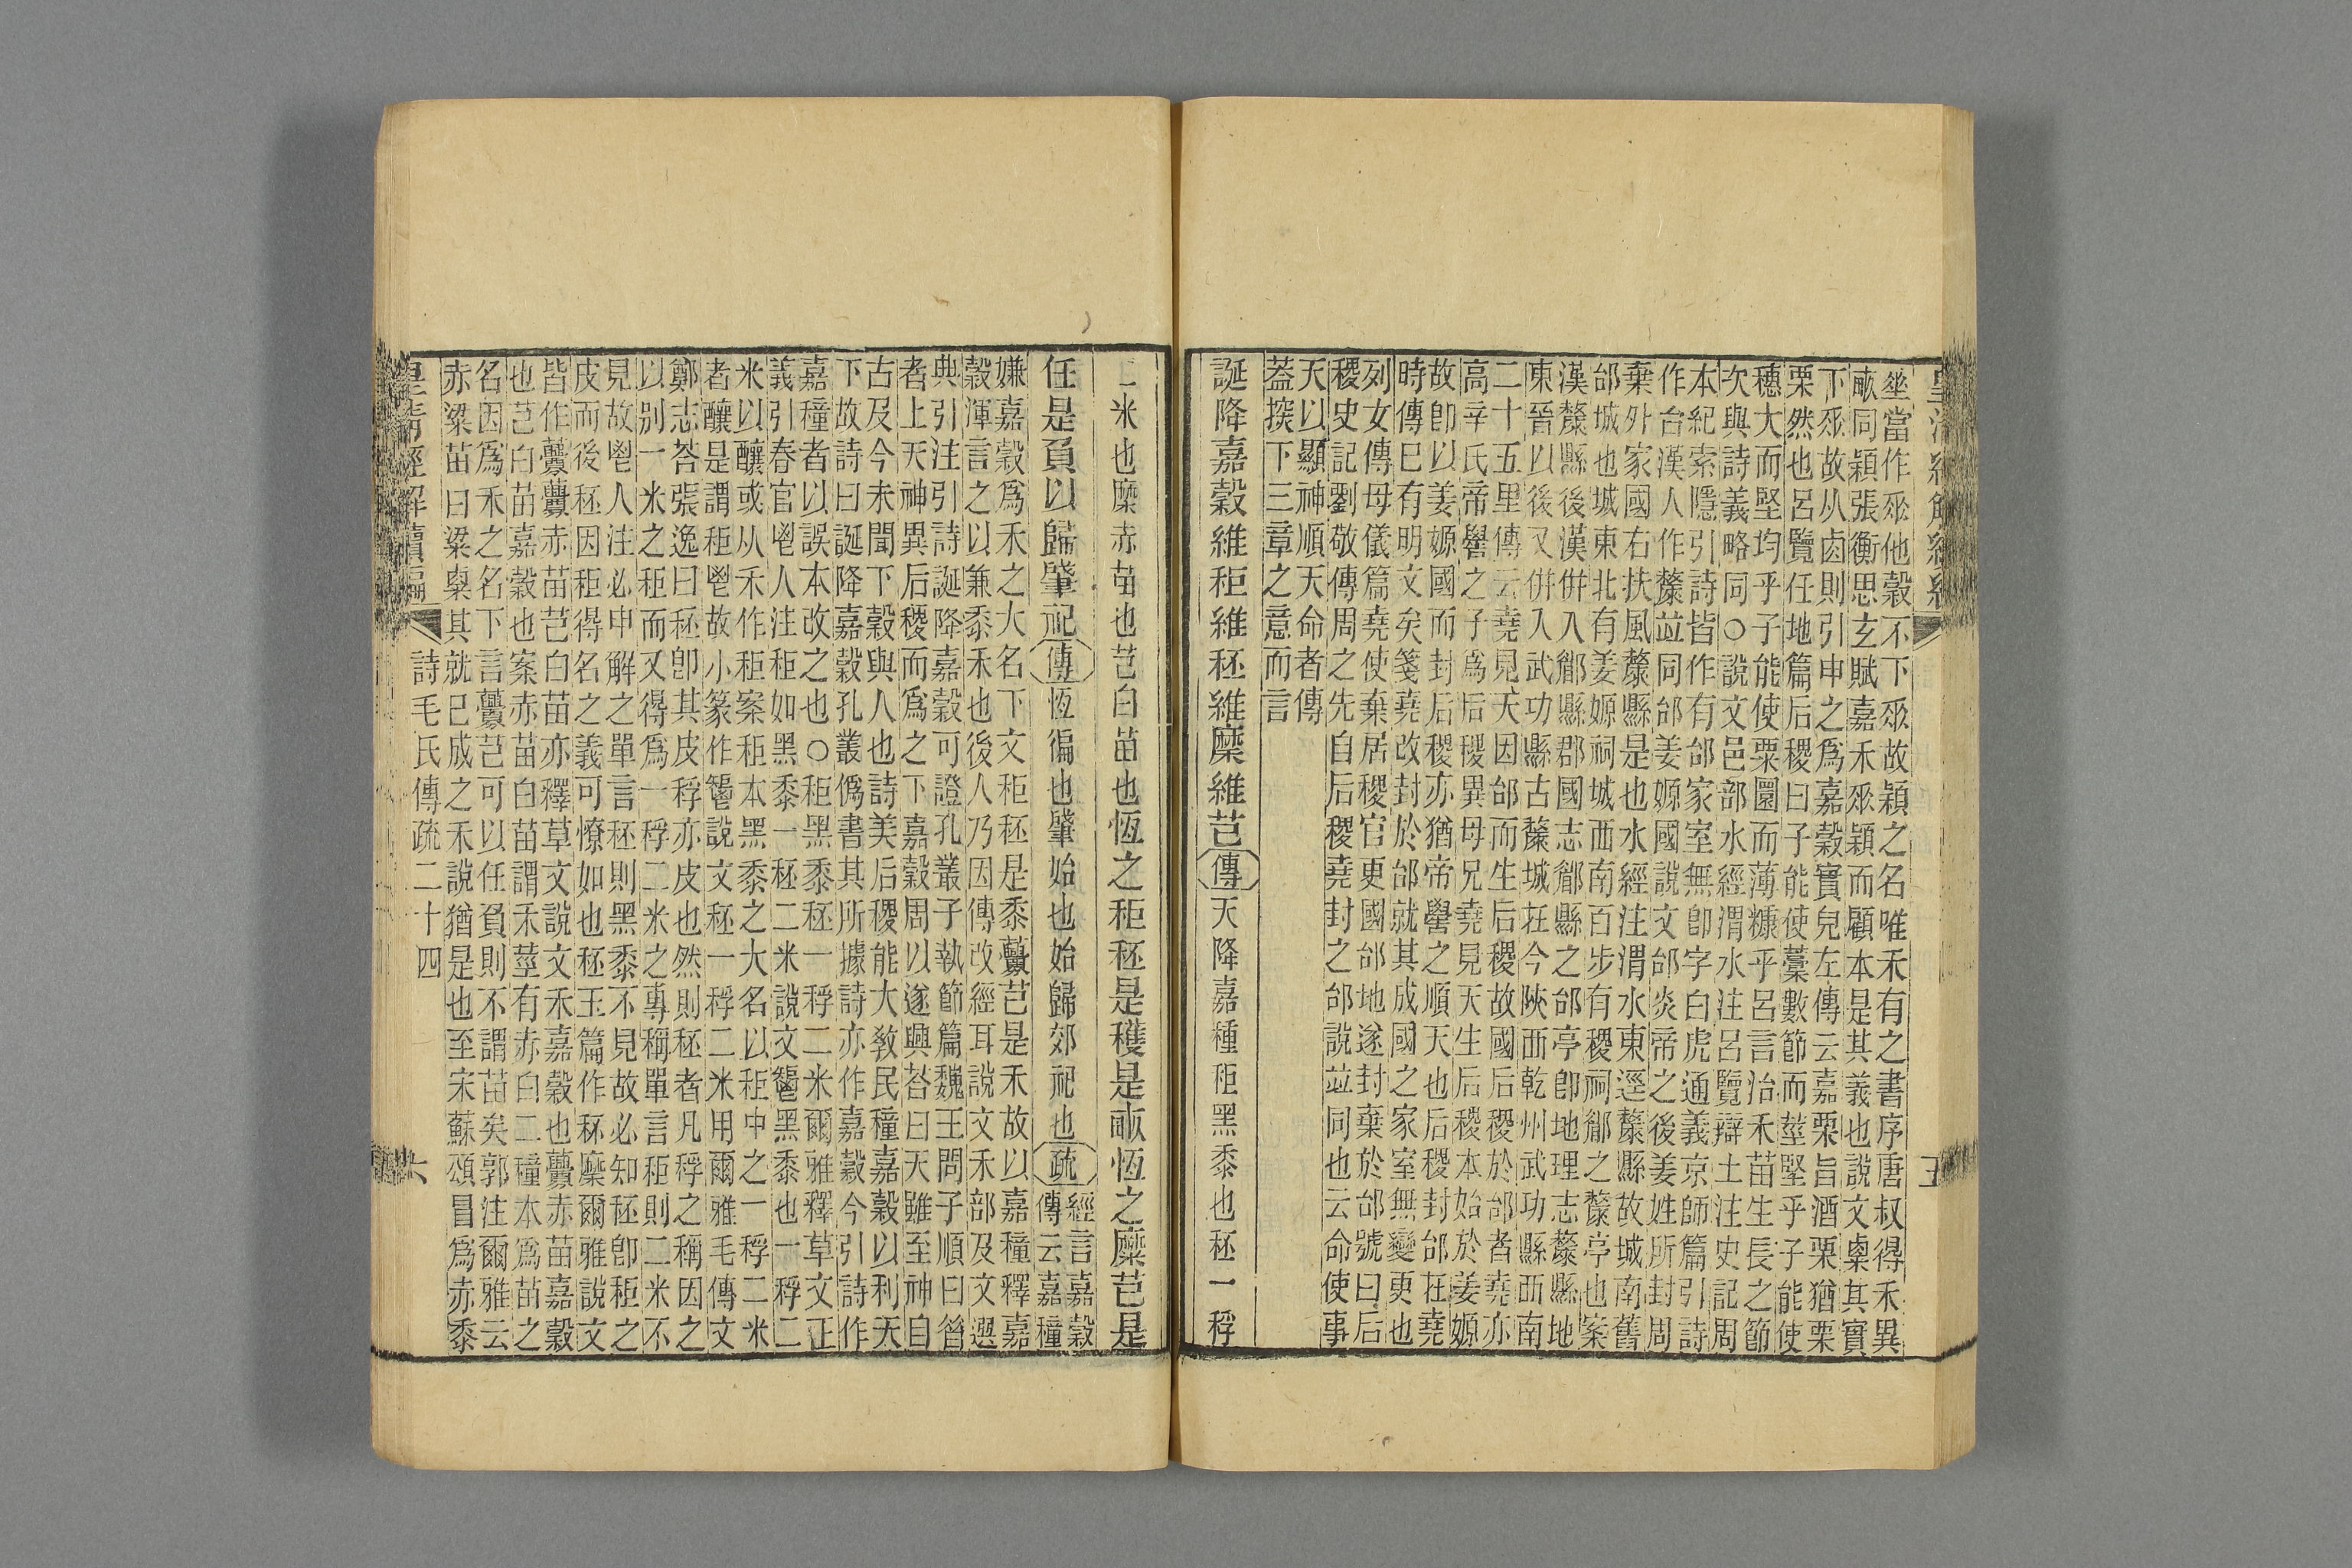 坐當作𠂹他穀不下𠂹故穎之名唯禾有之書序唐叔得禾異
畞同穎張衡思玄賦嘉禾𠂹穎而顧本是其義也說文㮚其實
下𠂹故从卤則引申之爲嘉穀實皃左傳云嘉栗旨酒栗猶栗
栗然也呂覽任地篇后稷曰子能使藁數節而莖堅乎子能使
穗大而堅均乎子能使粟圜而薄糠乎呂言治禾苗生長之節
次與詩義略同○說文邑部水經渭水注呂覽辯土注史記周
本紀索隱引詩皆作有邰家室無卽字白虎通義京師篇引詩
作台漢人作斄竝同邰姜嫄國說文邰炎帝之後姜姓所封周
棄外家國右扶風斄縣是也水經注渭水東逕斄縣故城南舊
邰城也城東北有姜嫄祠城西南百步有稷祠郿之斄亭也案
漢斄縣後漢併入郿縣郡國志郿縣之邰亭卽地理志斄縣地
東晉以後又併入武功縣古斄城在今陝西乾州武功縣西南
二十五里傳云堯見天因邰而生后稷故國后稷於邰者堯亦
高辛氏帝嚳之子爲后稷異母兄堯見天生后稷本始於姜嫄
故卽以姜嫄國而封后稷亦猶帝嚳之順天也后稷封邰在堯
時傳巳有明文矣箋堯改封於邰就其成國之家室無變更也
列女傳母儀篇堯使棄居稷官更國邰地遂封棄於邰號曰后
稷史記劉敬傳周之先自后稷堯封之邰說竝同也云命使事
天以顯神順天命者傳
蓋探下三章之意而言
誕降嘉穀維秬維秠維穈維芑傳天降嘉種秬黑黍也秠一稃
二米也穈赤苗也芑白苗也恆之秬秠是穫是畞恆之穈芑是
任是負以歸肇祀傳恆徧也肇始也始歸郊祀也疏經言嘉穀
傳云嘉穜
嫌嘉穀爲禾之大名下文秬秠是黍虋芑是禾故以嘉穜釋嘉
穀渾言之以兼黍禾也後人乃因傳改經耳說文禾部及文選
典引注引詩誕降嘉穀可證孔叢子執節篇魏王問子順曰昝
者上天神異后稷而爲之下嘉穀周以遂興荅曰天雖至神自
古及今未聞下穀與人也詩美后稷能大敎民穜嘉穀以利天
下故詩曰誕降嘉穀孔叢僞書其所據詩亦作嘉穀今引詩作
嘉穜者以誤本改之也○秬黑黍秠一稃二米爾雅釋草文正
義引春官鬯人注秬如黑黍一秠二米說文𩰪黑黍也一稃二
米以釀或从禾作秬案秬本黑黍之大名以秬中之一稃二米
者釀是謂秬鬯故小篆作𩰪說文秠一稃二米用爾雅毛傳文
鄭志荅張逸曰秠卽其皮稃亦皮也然則秠者凡稃之稱因之
以別一米之秬而又得爲一稃二米之專稱單言秬則二米不
見故鬯人注必申解之單言秠則黑黍不見故必知秠卽秬之
皮而後秠因秬得名之義可憭如也秠玉篇作秠穈爾雅說文
皆作虋虋赤苗芑白苗亦釋草文說文禾嘉穀也虋赤苗嘉穀
也芑白苗嘉穀也案赤苗白苗謂禾莖有赤白二穜本爲苗之
名因爲禾之名下言虋芑可以任負則不謂苗矣郭注爾雅云
赤粱苗曰粱㮚其就已成之禾說猶是也至宋蘇頌冒爲赤黍
皇清經解續編 詩毛氏傳疏二十四 六